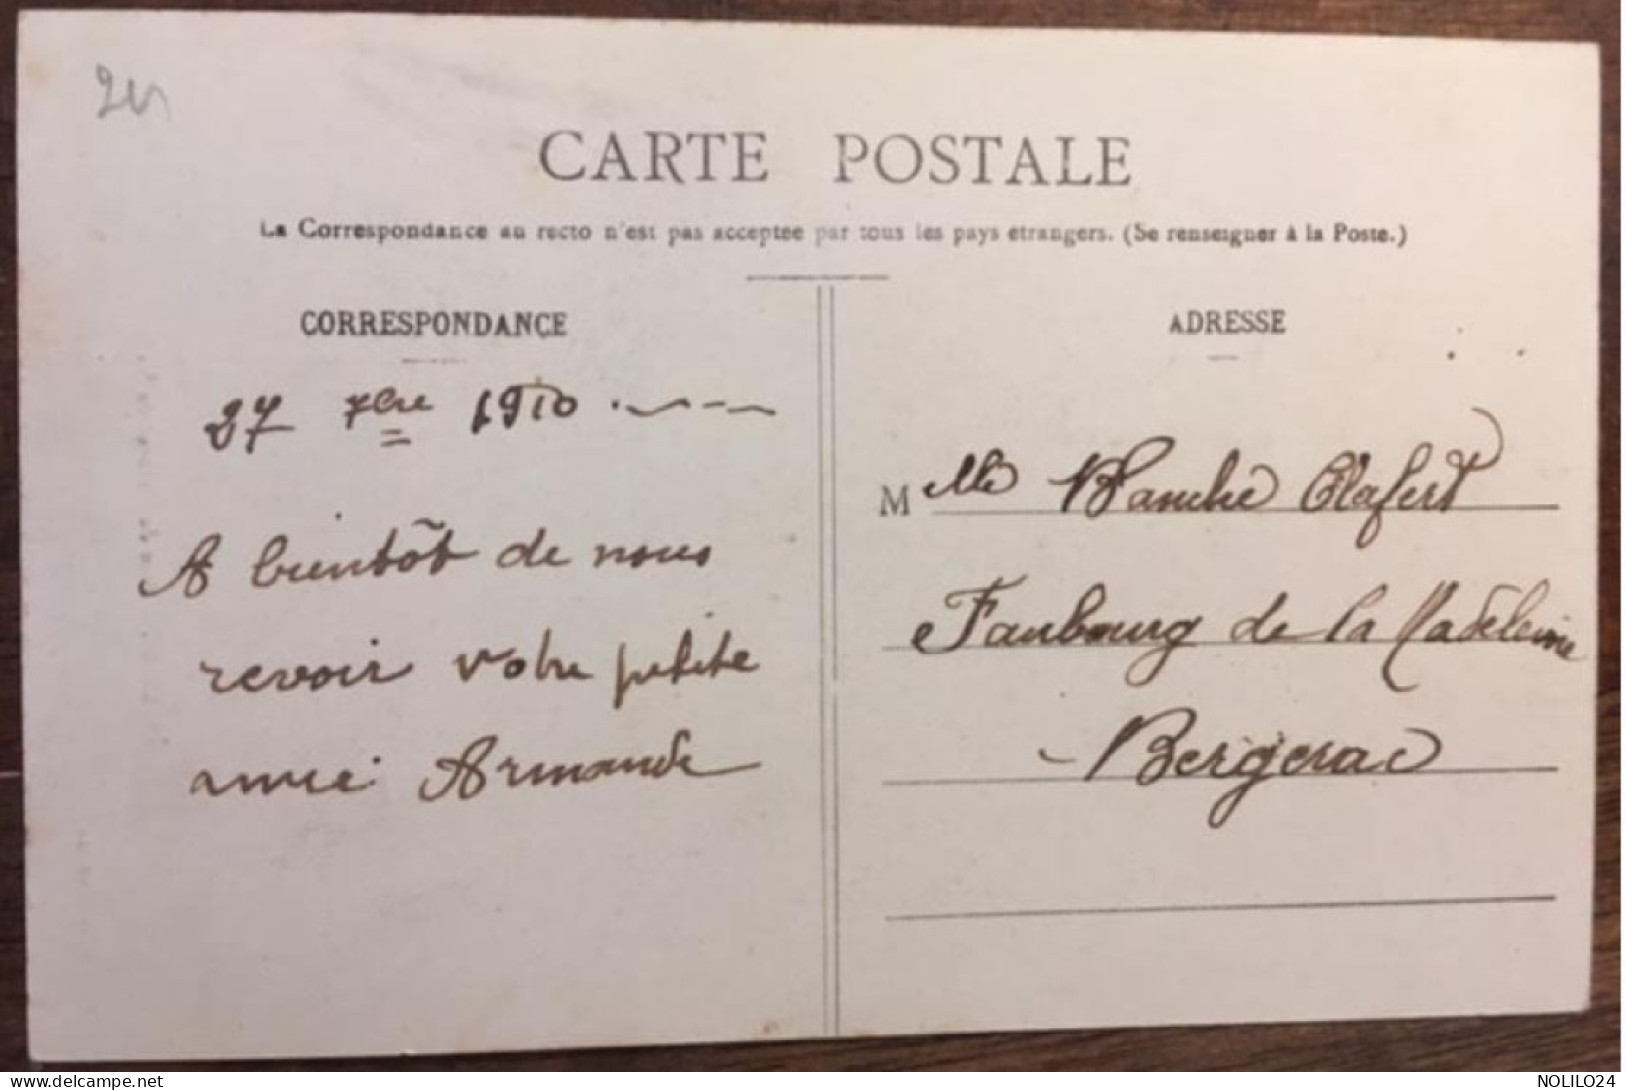 CARTE POSTALE
La Correspondance au recto n'est pas acceptée par tous les pays étrangers. (Se renseigner à la Poste.)
CORRESPONDANCE
27 7bre 1910
A bientôt de nous
revoir votre petite
amie Armande
ADRESSE
Melle Blanche
Faubourg de la Madeleine
Bergerac
delcampe.net
NOLILO24